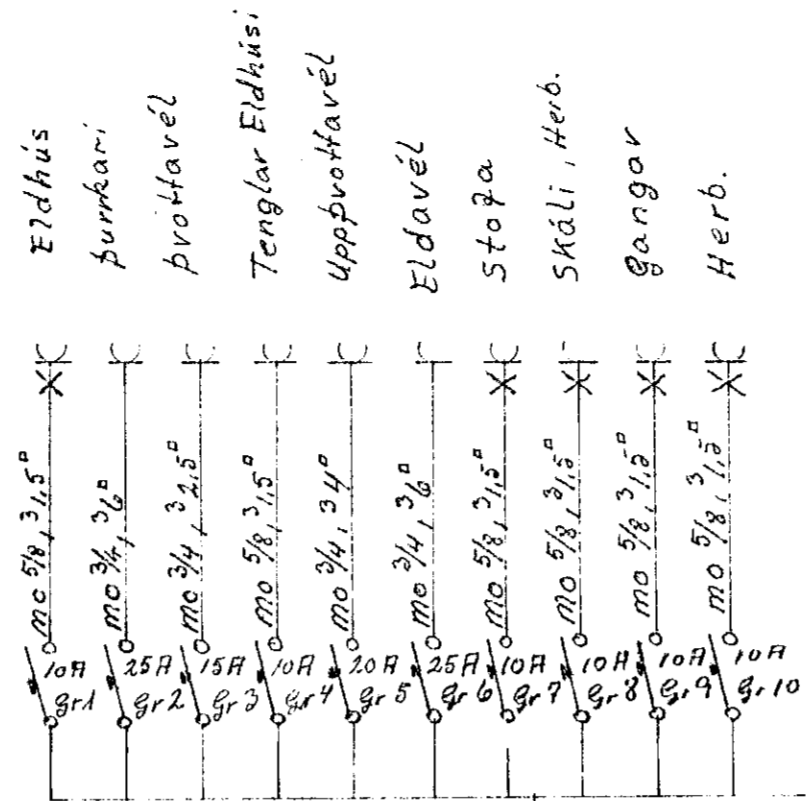 Eldhús
þurrkari
þvottavél
Tenglar Eldhúsi
Uppþvottavél
Eldavél
Stofa
Skáli, Herb.
Gangar
Herb.
mo 5/8, 3 1,5▫
mo 3/4, 3 6▫
mo 3/4, 3 2,5▫
mo 5/8, 3 1,5▫
mo 3/4, 3 4▫
mo 3/4, 3 6▫
mo 5/8, 3 1,5▫
mo 5/8, 3 1,5▫
mo 5/8, 3 1,5▫
mo 5/8, 3 1,5▫
10A
25A
15A
10A
20A
25A
10A
10A
10A
10A
Gr 1
Gr 2
Gr 3
Gr 4
Gr 5
Gr 6
Gr 7
Gr 8
Gr 9
Gr 10